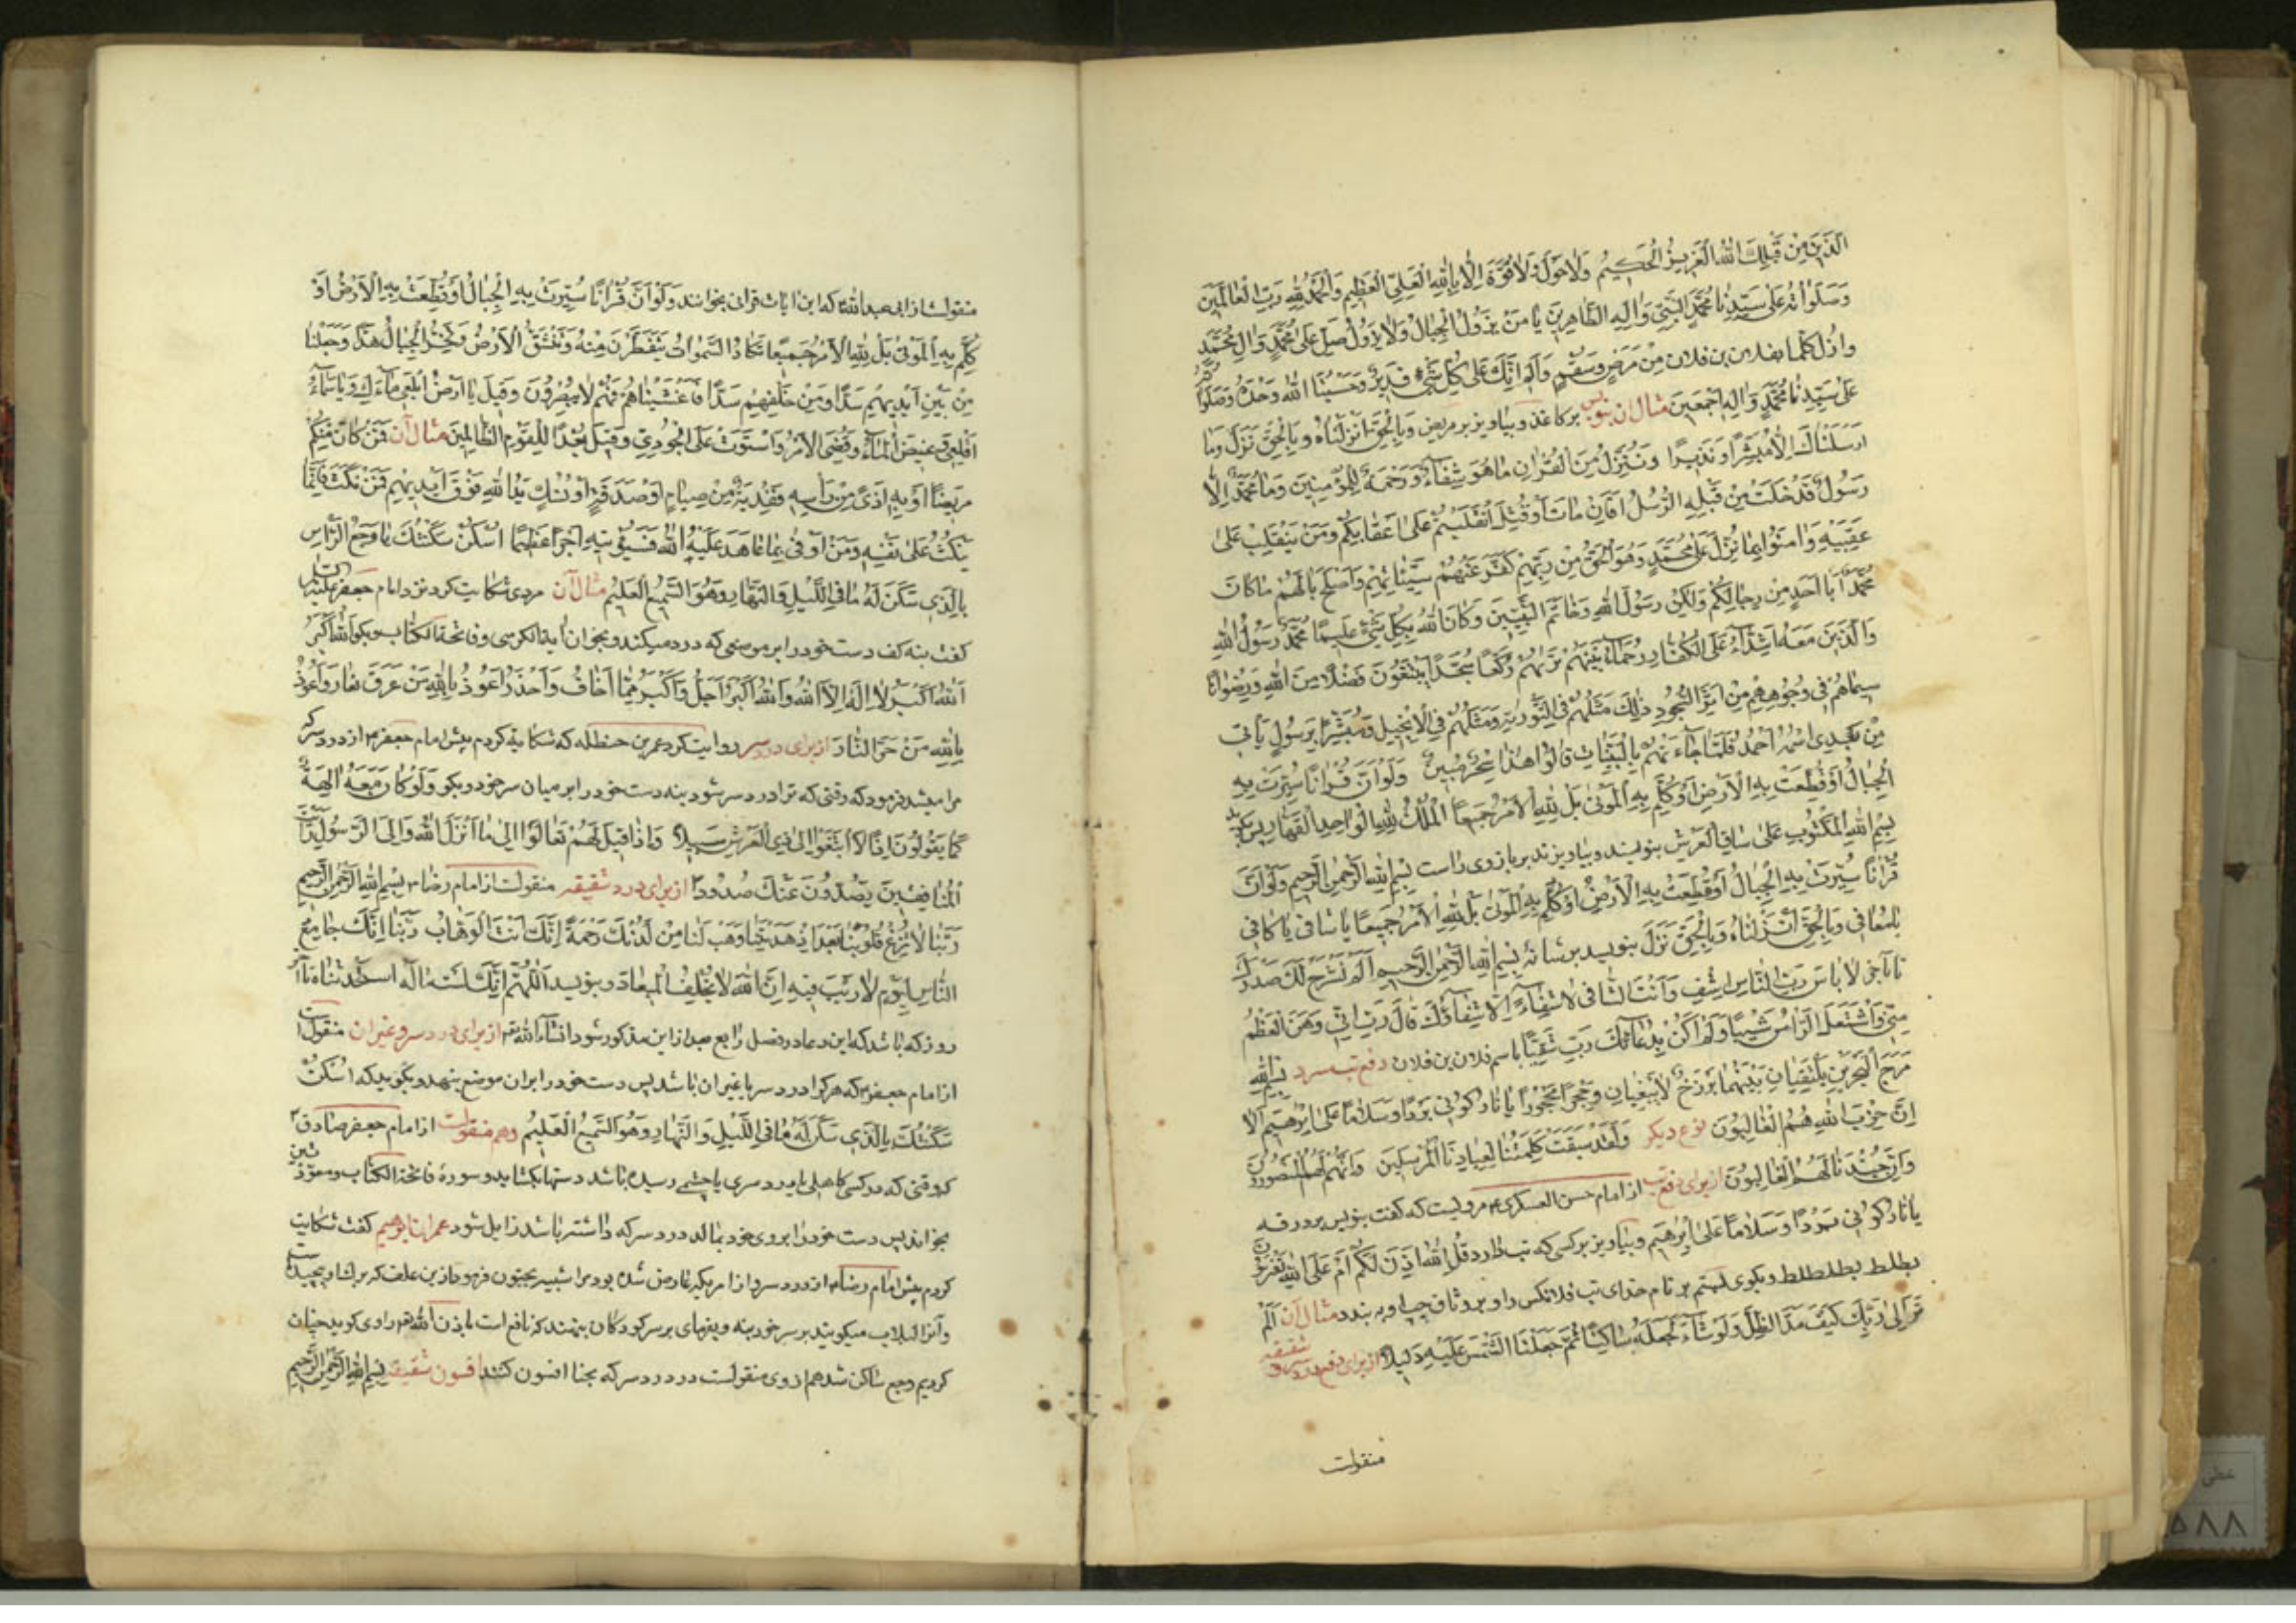 الَّذينَ مِنْ قَبْلِكَ اللهُ الْعَزيزُ الْحَكيمُ وَلاحَوْلَ وَلاقُوَّةَ اِلاّ بِاللهِ الْعَلِىِّ الْعَظيمِ وَالْحَمْدُ لِلّهِ رَبِّ الْعالَمينَ
وَصَلَواتُهُ عَلى سَيِّدِنا مُحَمَّدٍ النَّبِىِّ وَآلِهِ الطّاهِرينَ يا مَنْ يَزُولُ الْجِبالُ وَلا يَزُولُ صَلِّ عَلى مُحَمَّدٍ وَآلِ مُحَمَّدٍ
وازل كلما بفلان بن فلان مِنْ مَرَضٍ وَسَقَمٍ وَاَلَمٍ اِنَّكَ عَلى كُلِّ شَىْءٍ قَديرٌ وَحَسْبُنَا اللهُ وَحْدَهُ وَصَلَواتُهُ
عَلى سَيِّدِنا مُحَمَّدٍ وَآلِهِ اَجْمَعينَ مثال آن بنویس بر کاغذ و بیاویز بر مریض وَبِالْحَقِّ اَنْزَلْناهُ وَبِالْحَقِّ نَزَلَ وَما
اَرْسَلْناكَ اِلاّ مُبَشِّرًا وَنَذيرًا وَنُنَزِّلُ مِنَ الْقُرْانِ ما هُوَ شِفاءٌ وَرَحْمَةٌ لِلْمُؤْمِنينَ وَما مُحَمَّدٌ اِلاّ
رَسُولٌ قَدْ خَلَتْ مِنْ قَبْلِهِ الرُّسُلُ اَفَاِنْ ماتَ اَوْ قُتِلَ انْقَلَبْتُمْ عَلى اَعْقابِكُمْ وَمَنْ يَنْقَلِبْ عَلى
عَقِبَيْهِ وَامَنُوا بِما نُزِّلَ عَلى مُحَمَّدٍ وَهُوَ الْحَقُّ مِنْ رَبِّهِمْ كَفَّرَ عَنْهُمْ سَيِّئاتِهِمْ وَاَصْلَحَ بالَهُمْ ما كانَ
مُحَمَّدٌ اَبا اَحَدٍ مِنْ رِجالِكُمْ وَلكِنْ رَسُولَ اللهِ وَخاتَمَ النَّبِيّينَ وَكانَ اللهُ بِكُلِّ شَىْءٍ عَليمًا مُحَمَّدٌ رَسُولُ اللهِ
وَالَّذينَ مَعَهُ اَشِدّاءُ عَلَى الْكُفّارِ رُحَماءُ بَيْنَهُمْ تَريهُمْ رُكَّعًا سُجَّدًا يَبْتَغُونَ فَضْلاً مِنَ اللهِ وَرِضْوانًا
سيماهُمْ فى وُجُوهِهِمْ مِنْ اَثَرِ السُّجُودِ ذلِكَ مَثَلُهُمْ فِى التَّوْريةِ وَمَثَلُهُمْ فِى الاِنْجيلِ وَمُبَشِّرًا بِرَسُولٍ يَأْتى
مِنْ بَعْدِى اسْمُهُ اَحْمَدُ فَلَمّا جاءَتْهُمْ بِالْبَيِّناتِ قالُوا هذا سِحْرٌ مُبينٌ وَلَوْ اَنَّ قُرْانًا سُيِّرَتْ بِهِ
الْجِبالُ اَوْ قُطِّعَتْ بِهِ الاَرْضُ اَوْ كُلِّمَ بِهِ الْمَوْتى بَلْ لِلّهِ الاَمْرُ جَميعًا الْمُلْكُ لِلّهِ الْواحِدِ الْقَهّارِ پس بگوید
بِسْمِ اللهِ الْمَكْتُوبِ عَلى ساقِ الْعَرْشِ بنویسد و بیاویزند بر بازوی راست بِسْمِ اللهِ الرَّحْمنِ الرَّحيمِ وَلَوْ اَنَّ
قُرْانًا سُيِّرَتْ بِهِ الْجِبالُ اَوْ قُطِّعَتْ بِهِ الاَرْضُ اَوْ كُلِّمَ بِهِ الْمَوْتى بَلْ لِلّهِ الاَمْرُ جَميعًا يا شافى يا كافى
يا مُعافى وَبِالْحَقِّ اَنْزَلْناهُ وَبِالْحَقِّ نَزَلَ بنویسد بر شانه بِسْمِ اللهِ الرَّحْمنِ الرَّحيمِ اَلَمْ نَشْرَحْ لَكَ صَدْرَكَ
تا بآخر لا بَأْسَ رَبَّ النّاسِ اشْفِ وَاَنْتَ الشّافى لا شِفاءَ اِلاّ شِفاؤُكَ قالَ رَبِّ اِنّى وَهَنَ الْعَظْمُ
مِنّى وَاشْتَعَلَ الرَّأْسُ شَيْبًا وَلَمْ اَكُنْ بِدُعائِكَ رَبِّ شَقِيًّا باسم فلان بن فلان دفع تب سرد بِسْمِ اللهِ
مَرَجَ الْبَحْرَيْنِ يَلْتَقِيانِ بَيْنَهُما بَرْزَخٌ لا يَبْغِيانِ وَحِجْرًا مَحْجُورًا يا نارُ كُونى بَرْدًا وَسَلامًا عَلى اِبْرهيمَ اَلا
اِنَّ حِزْبَ اللهِ هُمُ الْغالِبُونَ نوع دیگر وَلَقَدْ سَبَقَتْ كَلِمَتُنا لِعِبادِنَا الْمُرْسَلينَ وَاِنَّهُمْ لَهُمُ الْمَنْصُورُونَ
وَاِنَّ جُنْدَنا لَهُمُ الْغالِبُونَ از برای دفع تب از امام حسن العسکری ع مرویست که گفت بنویس بر ورقه
يا نارُ كُونى بَرْدًا وَسَلامًا عَلى اِبْرهيمَ وبیاویز بر کسی که تب دارد قُلْ اللهُ اَذِنَ لَكُمْ اَمْ عَلَى اللهِ تَفْتَرُونَ
بطلط بطلطلط وبکوی بستم بر نام خدای تب فلانکس را و بر وثاق چپ او به بندد مثال آن اَلَمْ
تَرَ اِلى رَبِّكَ كَيْفَ مَدَّ الظِّلَّ وَلَوْ شاءَ لَجَعَلَهُ ساكِنًا ثُمَّ جَعَلْنَا الشَّمْسَ عَلَيْهِ دَليلاً از برای دفع درد سر و شقیقه
منقولست
منقولست از ابی عبدالله ع که این ایات قرانی بخوانند وَلَوْ اَنَّ قُرْانًا سُيِّرَتْ بِهِ الْجِبالُ اَوْ قُطِّعَتْ بِهِ الاَرْضُ اَوْ
كُلِّمَ بِهِ الْمَوْتى بَلْ لِلّهِ الاَمْرُ جَميعًا تَكادُ السَّمواتُ يَتَفَطَّرْنَ مِنْهُ وَتَنْشَقُّ الاَرْضُ وَتَخِرُّ الْجِبالُ هَدًّا وَجَعَلْنا
مِنْ بَيْنِ اَيْديهِمْ سَدًّا وَمِنْ خَلْفِهِمْ سَدًّا فَاَغْشَيْناهُمْ فَهُمْ لا يُبْصِرُونَ وَقيلَ يا اَرْضُ ابْلَعى ماءَكِ وَيا سَماءُ
اَقْلِعى وَغيضَ الْماءُ وَقُضِىَ الاَمْرُ وَاسْتَوَتْ عَلَى الْجُودِىِّ وَقيلَ بُعْدًا لِلْقَوْمِ الظّالِمينَ مثال آن فَمَنْ كانَ مِنْكُمْ
مَريضًا اَوْ بِهِ اَذًى مِنْ رَأْسِهِ فَفِدْيَةٌ مِنْ صِيامٍ اَوْ صَدَقَةٍ اَوْ نُسُكٍ يَدُ اللهِ فَوْقَ اَيْديهِمْ فَمَنْ نَكَثَ فَاِنَّما
يَنْكُثُ عَلى نَفْسِهِ وَمَنْ اَوْفى بِما عاهَدَ عَلَيْهُ اللهَ فَسَيُؤْتيهِ اَجْرًا عَظيمًا اُسْكُنْ سَكَّنْتُكَ يا وَجَعَ الرَّأْسِ
بِالَّذى سَكَنَ لَهُ ما فِى اللَّيْلِ وَالنَّهارِ وَهُوَ السَّميعُ الْعَليمُ مثال آن مردی شکایت کرد نزد امام جعفر علیه السلام
گفت بنه کف دست خود را بر موضعی که درد میکند و بخوان آیة الکرسی و فاتحة الکتاب و بکو اَللهُ اَكْبَرُ
اَللهُ اَكْبَرُ لا اِلهَ اِلاَّ اللهُ وَاللهُ اَكْبَرُ اَجَلُّ وَاَكْبَرُ مِمّا اَخافُ وَاَحْذَرُ اَعُوذُ بِاللهِ مِنْ عِرْقٍ نَعّارٍ وَاَعُوذُ
بِاللهِ مِنْ حَرِّ النّارِ از برای درد سر روایت کرد عمر بن حنظله که شکایت کردم پیش امام جعفر ع از درد سر که
مرا میشد فرمود که وقتی که ترا درد سر شود بنه دست خود را بر میان سر خود و بکو وَلَوْ كانَ مَعَهُ الِهَةٌ
كَما يَقُولُونَ اِذًا لاَبْتَغَوْا اِلى ذِى الْعَرْشِ سَبيلاً وَاِذا قيلَ لَهُمْ تَعالَوْا اِلى ما اَنْزَلَ اللهُ وَاِلَى الرَّسُولِ رَاَيْتَ
الْمُنافِقينَ يَصُدُّونَ عَنْكَ صُدُودًا از برای درد شقیقه منقولست از امام رضا ع بِسْمِ اللهِ الرَّحْمنِ الرَّحيمِ
رَبَّنا لا تُزِغْ قُلُوبَنا بَعْدَ اِذْ هَدَيْتَنا وَهَبْ لَنا مِنْ لَدُنْكَ رَحْمَةً اِنَّكَ اَنْتَ الْوَهّابُ رَبَّنا اِنَّكَ جامِعُ
النّاسِ لِيَوْمٍ لا رَيْبَ فيهِ اِنَّ اللهَ لا يُخْلِفُ الْميعادَ و بنویسد اَللّهُمَّ اِنَّكَ لَسْتَ بِالهٍ اسْتَحْدَثْناهُ تا آخر
دو زکه باشد که این دعا در فصل رابع بعد از این مذکور شود انشاءالله تع از برای درد سر و غیر ان منقولست
از امام جعفر ع که هر کرا درد سر یا غیر ان باشد پس دست خود را بر ان موضع بنهد و بگوید که اُسْكُنْ
سَكَّنْتُكَ بِالَّذى سَكَنَ لَهُ ما فِى اللَّيْلِ وَالنَّهارِ وَهُوَ السَّميعُ الْعَليمُ وهم منقولست از امام جعفر صادق ع
که وقتی که در کسی کاهلی یا درد سری یا چشمی رسیده باشد دستها بکشاید و سورهٔ فاتحة الکتاب و معوّذتین
بخواند پس دست خود را بر روی خود بمالد درد سر که داشته باشد زایل شود عمر ان ابرهیم گفت شکایت
کردم پیش امام رضا ع از درد سر و از امر یکه عارض شده بود مرا شبیه بجنون فرمود از بن علف که بر
وآنرا لبلاب میکویند بر سر خود بنه و بفرمای بر سر کودکان بنهند که نافع است باذن الله تع راوی کوید چنان
کردیم وجع ساکن شد هم از وی منقولست در درد سر که بجنا افسون کنند افسون شقیقه بِسْمِ اللهِ الرَّحْمنِ الرَّحيمِ
۵۸۸